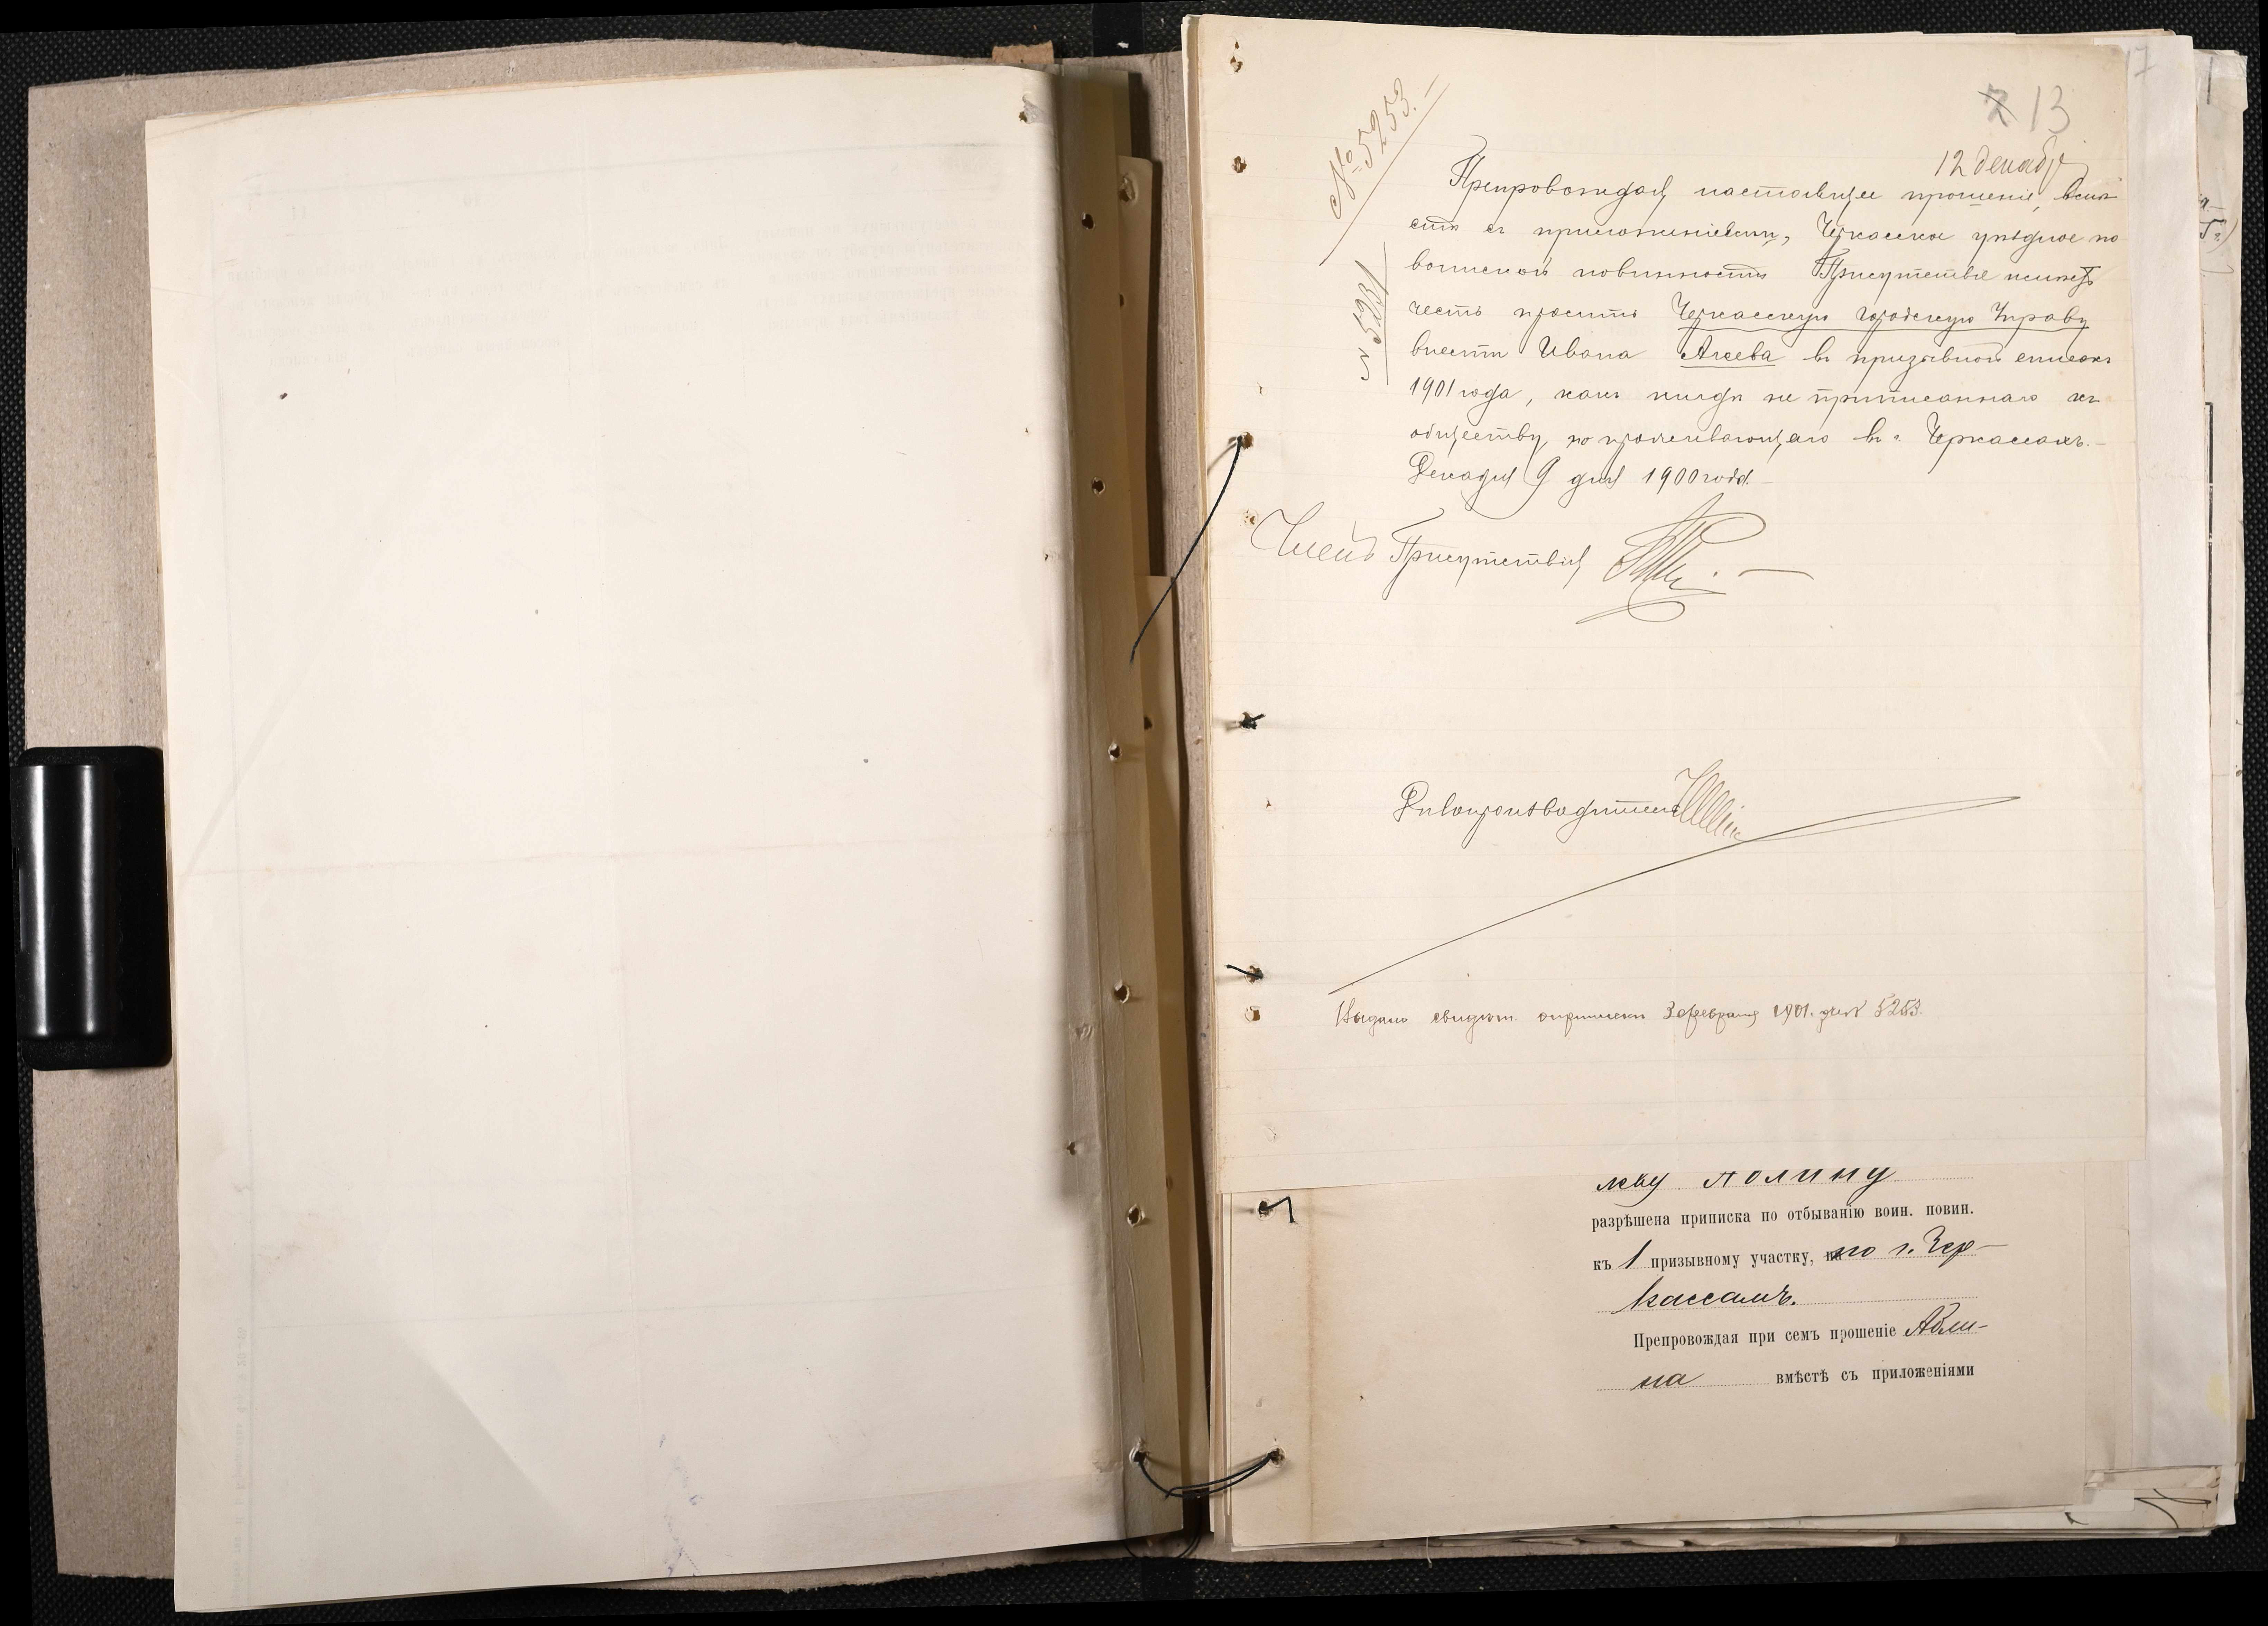 13
№ 5253.
12 декабря
Препровождая настоящее прошеніе, вмѣ-
стѣ съ приложеніями, Черкасское уѣздное по
воинской повинности Присутствіе имѣетъ
честь просить Черкасскую городскую Управу
внести Ивана Агеева въ призывной списокъ
1901 года, какъ нигдѣ не приписаннаго къ
обществу, но проживающаго въ г. Черкассахъ.
Декабря 9 дня 1900 года.
Членъ Присутствія
Дѣлопроизводитель
Выдано свидѣт. о припискѣ 3 февраля 1901. за № 5253.
разрѣшена приписка по отбыванію воин. повин.
къ 1 призывному участку, по г. Чер-
кассамъ.
Препровождая при семъ прошеніе Абли-
на вмѣстѣ съ приложеніями
17